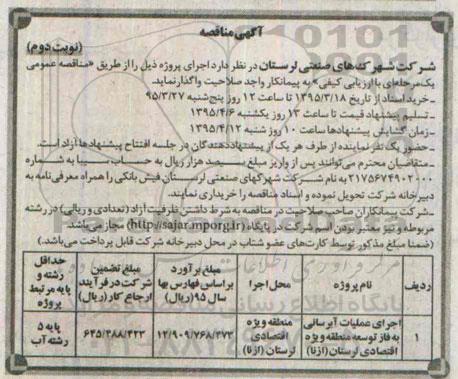 آگهی مناقصه
(نوبت دوم)
شرکت شهرک‌های صنعتی لرستان در نظر دارد اجرای پروژه ذیل را از طریق «مناقصه عمومی
یک مرحله‌ای با ارزیابی کیفی» به پیمانکار واجد صلاحیت واگذار نماید.
-خرید اسناد از تاریخ ۱۳۹۵/۳/۱۸ تا ساعت ۱۲ روز پنج‌شنبه ۹۵/۳/۲۷
-تسلیم پیشنهاد قیمت تا ساعت ۱۳ روز یکشنبه ۱۳۹۵/۴/۶
-زمان گشایش پیشنهادها ساعت ۱۰ روز شنبه ۱۳۹۵/۴/۱۲
-حضور یک نفر نماینده از طرف هر یک از پیشنهاددهندگان در جلسه افتتاح پیشنهادها آزاد است.
-متقاضیان محترم می‌توانند پس از واریز مبلغ سیصد هزار ریال به حساب سیبا به شماره
۲۱۷۵۶۷۴۹۰۲۰۰۰ به نام شرکت شهرکهای صنعتی لرستان، فیش بانکی را همراه معرفی‌نامه به
دبیرخانه شرکت تحویل نموده و اسناد مناقصه را خریداری نمایند.
-شرکت پیمانکاران صاحب صلاحیت در مناقصه به شرط داشتن ظرفیت آزاد (تعدادی و ریالی) در رشته
مربوطه و نیز معتبر بودن اسم شرکت در پایگاه (http://sajar.mporg.ir) مجاز می‌باشد.
(ضمنا مبلغ مذکور توسط کارت‌های عضو شتاب در محل دبیرخانه شرکت قابل پرداخت می‌باشد.)
ردیف | نام پروژه | محل اجرا | مبلغ برآورد براساس فهارس بها سال ۹۵ (ریال) | مبلغ تضمین شرکت در فرآیند ارجاع کار (ریال) | حداقل رشته و پایه مرتبط پروژه
۱ | اجرای عملیات آبرسانی به فاز توسعه منطقه ویژه اقتصادی لرستان (ازنا) | منطقه ویژه اقتصادی لرستان (ازنا) | ۱۲/۹۰۹/۷۶۸/۴۷۳ | ۶۴۵/۴۸۸/۴۲۳ | پایه ۵ رشته آب